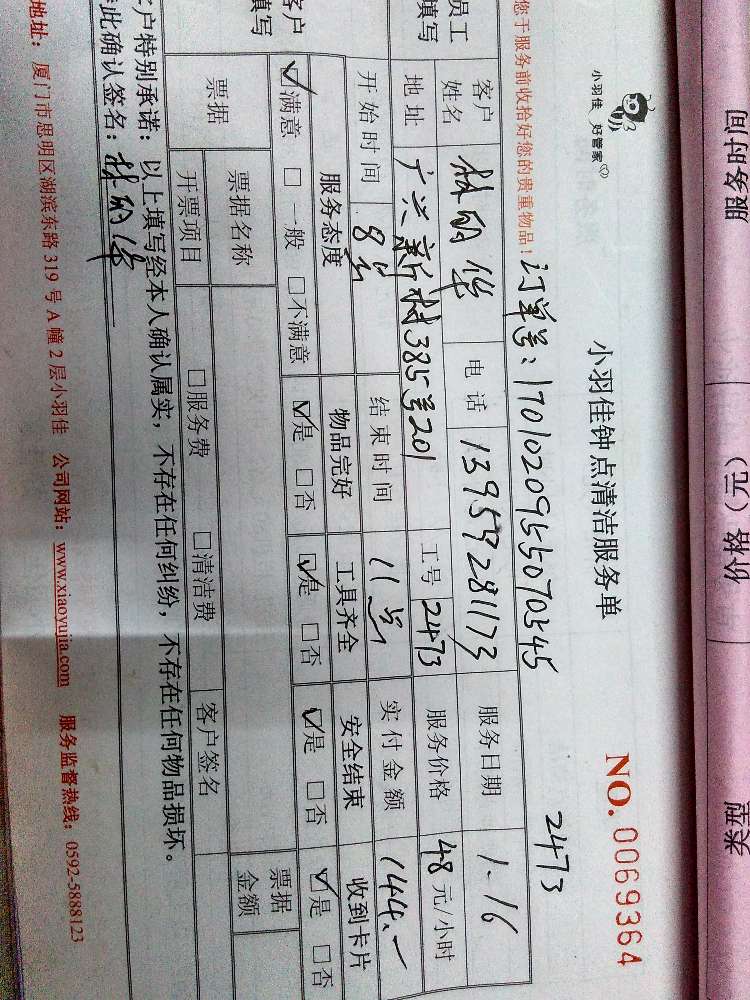 服务时间 价格（元） 类型
小羽佳 好管家
小羽佳钟点清洁服务单 NO. 0069364
2473
您于服务前收拾好您的贵重物品！订单号：17010209555070545
员工填写 客户姓名 林丽华 电话 13959281173 服务日期 1.16
地址 广兴新村385号201 工号 2473 服务价格 48元/小时
开始时间 8点 结束时间 11点 实付金额 144.-
客户填写 服务态度 物品完好 工具齐全 安全结束 收到卡片
☑满意 □一般 □不满意 ☑是 □否 ☑是 □否 ☑是 □否 ☑是 □否
票据 票据名称 票据金额
开票项目 □服务费 □清洁费 客户签名
客户特别承诺：以上填写经本人确认属实，不存在任何纠纷，不存在任何物品损坏。
此确认签名：林丽华
地址：厦门市思明区湖滨东路319号A幢2层小羽佳 公司网站：www.xiaoyujia.com 服务监督热线：0592-5888123